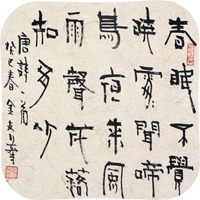 春眠不覺
曉處々聞啼
鳥夜來風
雨聲花落
知多少
唐詩一首
癸巳春